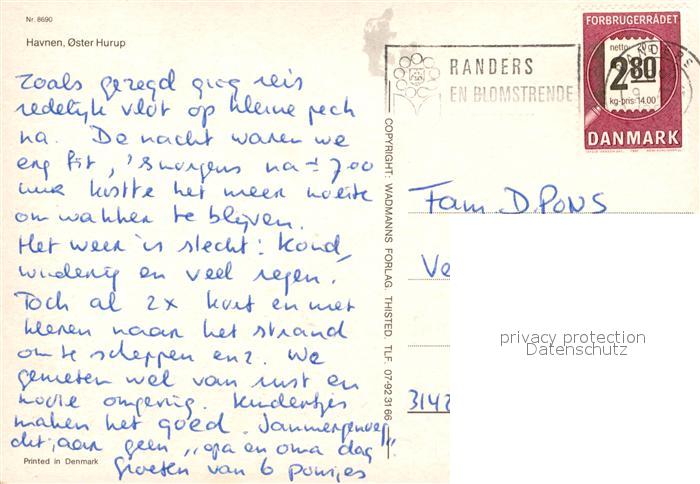 Nr. 8690
Havnen, Øster Hurup
Zoals gezegd ging reis
redelijk vlot op kleine pech
na. De nacht waren we
erg fit, 's morgens na ± 7.00
uur kostte het meer moeite
om wakker te blijven.
Het weer is slecht: koud,
winderig en veel regen.
Toch al 2x kort en met
kleren naar het strand
om te scheppen enz. We
genieten wel van rust en
mooie omgeving. Kindertjes
maken het goed. Jammergenoeg
dit jaar geen „opa en oma dag".
Groeten van 6 ponsjes
Printed in Denmark
COPYRIGHT: WADMANNS FORLAG. THISTED. TLF. 07-92 31 66
RANDERS
EN BLOMSTRENDE
RANDERS
FORBRUGERRÅDET
netto 20g
2 80
kg-pris: 14.00
DANMARK
Fam D. PONS
Ve
3142
privacy protection
Datenschutz